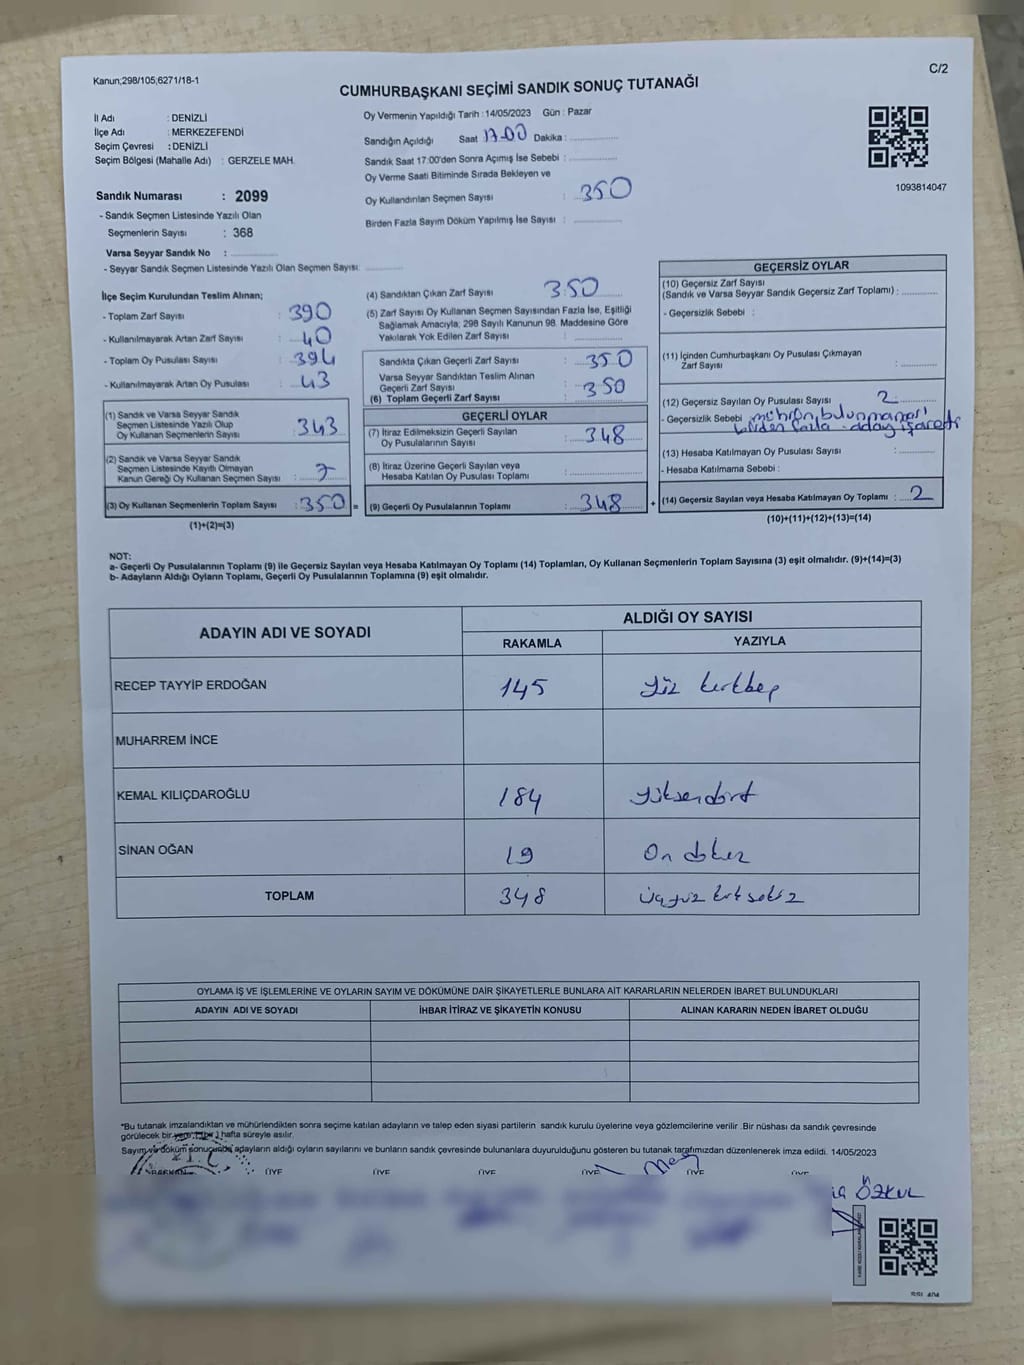 Kanun;298/105;6271/18-1
C/2
CUMHURBAŞKANI SEÇİMİ SANDIK SONUÇ TUTANAĞI
İl Adı : DENİZLİ
İlçe Adı : MERKEZEFENDİ
Seçim Çevresi : DENİZLİ
Seçim Bölgesi (Mahalle Adı) : GERZELE MAH.
Sandık Numarası : 2099
- Sandık Seçmen Listesinde Yazılı Olan
Seçmenlerin Sayısı : 368
Varsa Seyyar Sandık No :
- Seyyar Sandık Seçmen Listesinde Yazılı Olan Seçmen Sayısı:
Oy Vermenin Yapıldığı Tarih :14/05/2023 Gün : Pazar
Sandığın Açıldığı Saat 17.00 Dakika :
Sandık Saat 17:00'den Sonra Açımış İse Sebebi :
Oy Verme Saati Bitiminde Sırada Bekleyen ve
Oy Kullandırılan Seçmen Sayısı : 350
Birden Fazla Sayım Döküm Yapılmış İse Sayısı :
1093814047
İlçe Seçim Kurulundan Teslim Alınan;
- Toplam Zarf Sayısı : 390
- Kullanılmayarak Artan Zarf Sayısı : 40
- Toplam Oy Pusulası Sayısı : 394
- Kullanılmayarak Artan Oy Pusulası : 43
(1) Sandık ve Varsa Seyyar Sandık
Seçmen Listesinde Yazılı Olup
Oy Kullanan Seçmenlerin Sayısı : 343
(2) Sandık ve Varsa Seyyar Sandık
Seçmen Listesinde Kayıtlı Olmayan
Kanun Gereği Oy Kullanan Seçmen Sayısı : 7
(3) Oy Kullanan Seçmenlerin Toplam Sayısı : 350 =
(1)+(2)=(3)
(4) Sandıktan Çıkan Zarf Sayısı 350
(5) Zarf Sayısı Oy Kullanan Seçmen Sayısından Fazla İse, Eşitliği
Sağlamak Amacıyla; 298 Sayılı Kanunun 98. Maddesine Göre
Yakılarak Yok Edilen Zarf Sayısı :
Sandıkta Çıkan Geçerli Zarf Sayısı : 350
Varsa Seyyar Sandıktan Teslim Alınan
Geçerli Zarf Sayısı :
(6) Toplam Geçerli Zarf Sayısı : 350
GEÇERLİ OYLAR
(7) İtiraz Edilmeksizin Geçerli Sayılan
Oy Pusulalarının Sayısı : 348
(8) İtiraz Üzerine Geçerli Sayılan veya
Hesaba Katılan Oy Pusulası Toplamı :
(9) Geçerli Oy Pusulalarının Toplamı : 348 +
GEÇERSİZ OYLAR
(10) Geçersiz Zarf Sayısı
(Sandık ve Varsa Seyyar Sandık Geçersiz Zarf Toplamı) :
- Geçersizlik Sebebi :
(11) İçinden Cumhurbaşkanı Oy Pusulası Çıkmayan
Zarf Sayısı :
(12) Geçersiz Sayılan Oy Pusulası Sayısı 2
- Geçersizlik Sebebi mührün bulunmaması
birden fazla aday işareti
(13) Hesaba Katılmayan Oy Pusulası Sayısı :
- Hesaba Katılmama Sebebi :
(14) Geçersiz Sayılan veya Hesaba Katılmayan Oy Toplamı : 2
(10)+(11)+(12)+(13)=(14)
NOT:
a- Geçerli Oy Pusulalarının Toplamı (9) ile Geçersiz Sayılan veya Hesaba Katılmayan Oy Toplamı (14) Toplamları, Oy Kullanan Seçmenlerin Toplam Sayısına (3) eşit olmalıdır. (9)+(14)=(3)
b- Adayların Aldığı Oyların Toplamı, Geçerli Oy Pusulalarının Toplamına (9) eşit olmalıdır.
ADAYIN ADI VE SOYADI
ALDIĞI OY SAYISI
RAKAMLA YAZIYLA
RECEP TAYYİP ERDOĞAN 145 Yüz kırkbeş
MUHARREM İNCE
KEMAL KILIÇDAROĞLU 184 yüksendört
SİNAN OĞAN 19 On dokuz
TOPLAM 348 üçyüz kırk sekiz
OYLAMA İŞ VE İŞLEMLERİNE VE OYLARIN SAYIM VE DÖKÜMÜNE DAİR ŞİKAYETLERLE BUNLARA AİT KARARLARIN NELERDEN İBARET BULUNDUKLARI
ADAYIN ADI VE SOYADI İHBAR İTİRAZ VE ŞİKAYETİN KONUSU ALINAN KARARIN NEDEN İBARET OLDUĞU
*Bu tutanak imzalandıktan ve mühürlendikten sonra seçime katılan adayların ve talep eden siyasi partilerin sandık kurulu üyelerine veya gözlemcilerine verilir .Bir nüshası da sandık çevresinde
görülecek bir yere (bir) hafta süreyle asılır.
Sayım ve döküm sonucunda adayların aldığı oyların sayılarını ve bunların sandık çevresinde bulunanlara duyurulduğunu gösteren bu tutanak tarafımızdan düzenlenerek imza edildi. 14/05/2023
BAŞKAN ÜYE ÜYE ÜYE ÜYE ÜYE ÜYE
ÖZKUL